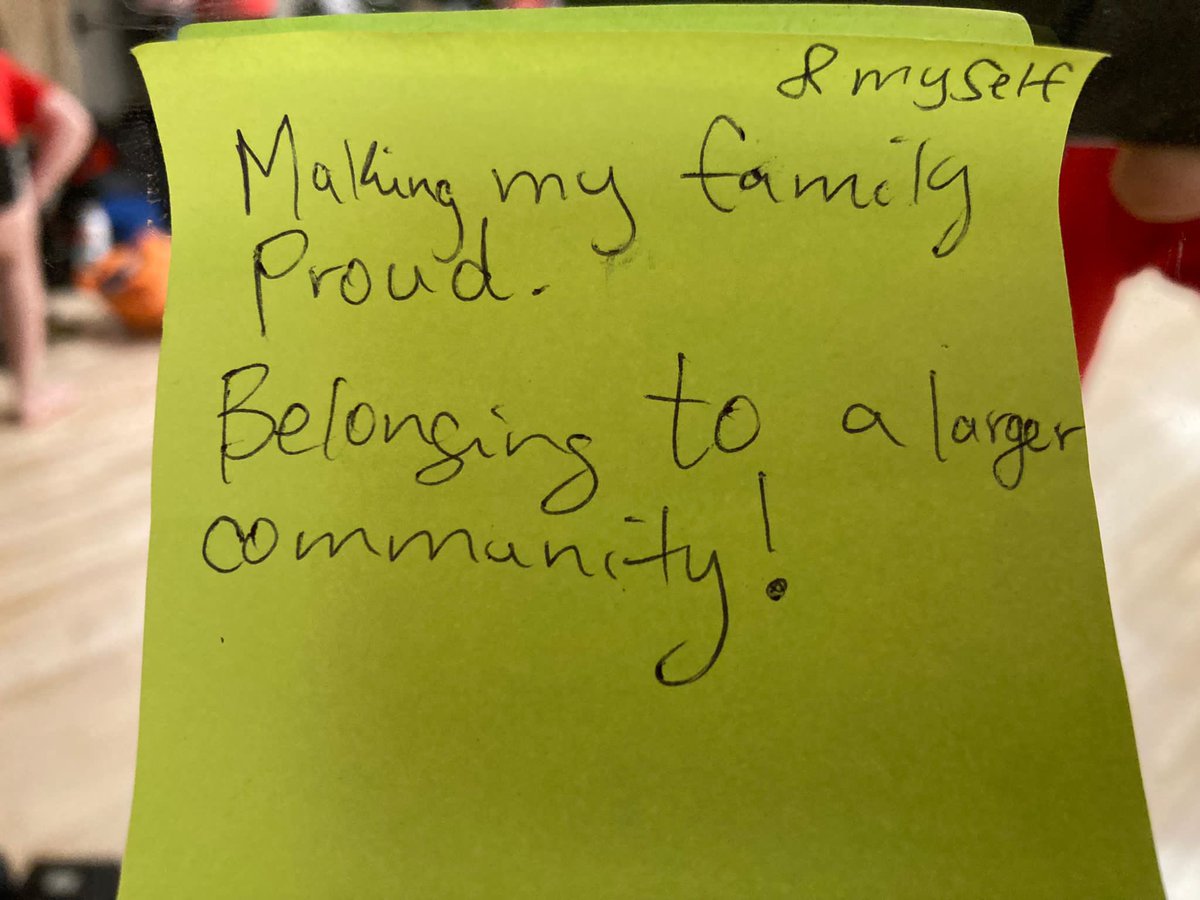 & myself
Making my family
Proud.
Belonging to a larger
community!